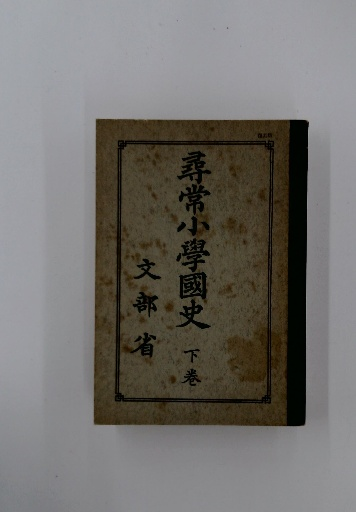 尋常小學國史 下巻
文部省